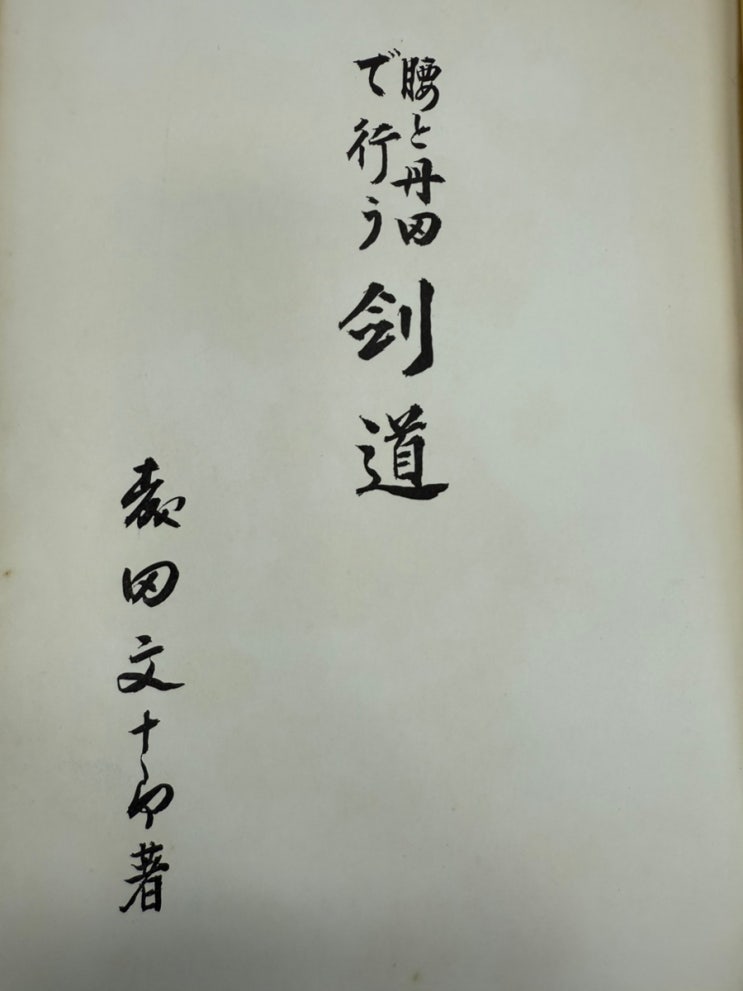 腰と丹田
で行う
剣道
森田文十郎著